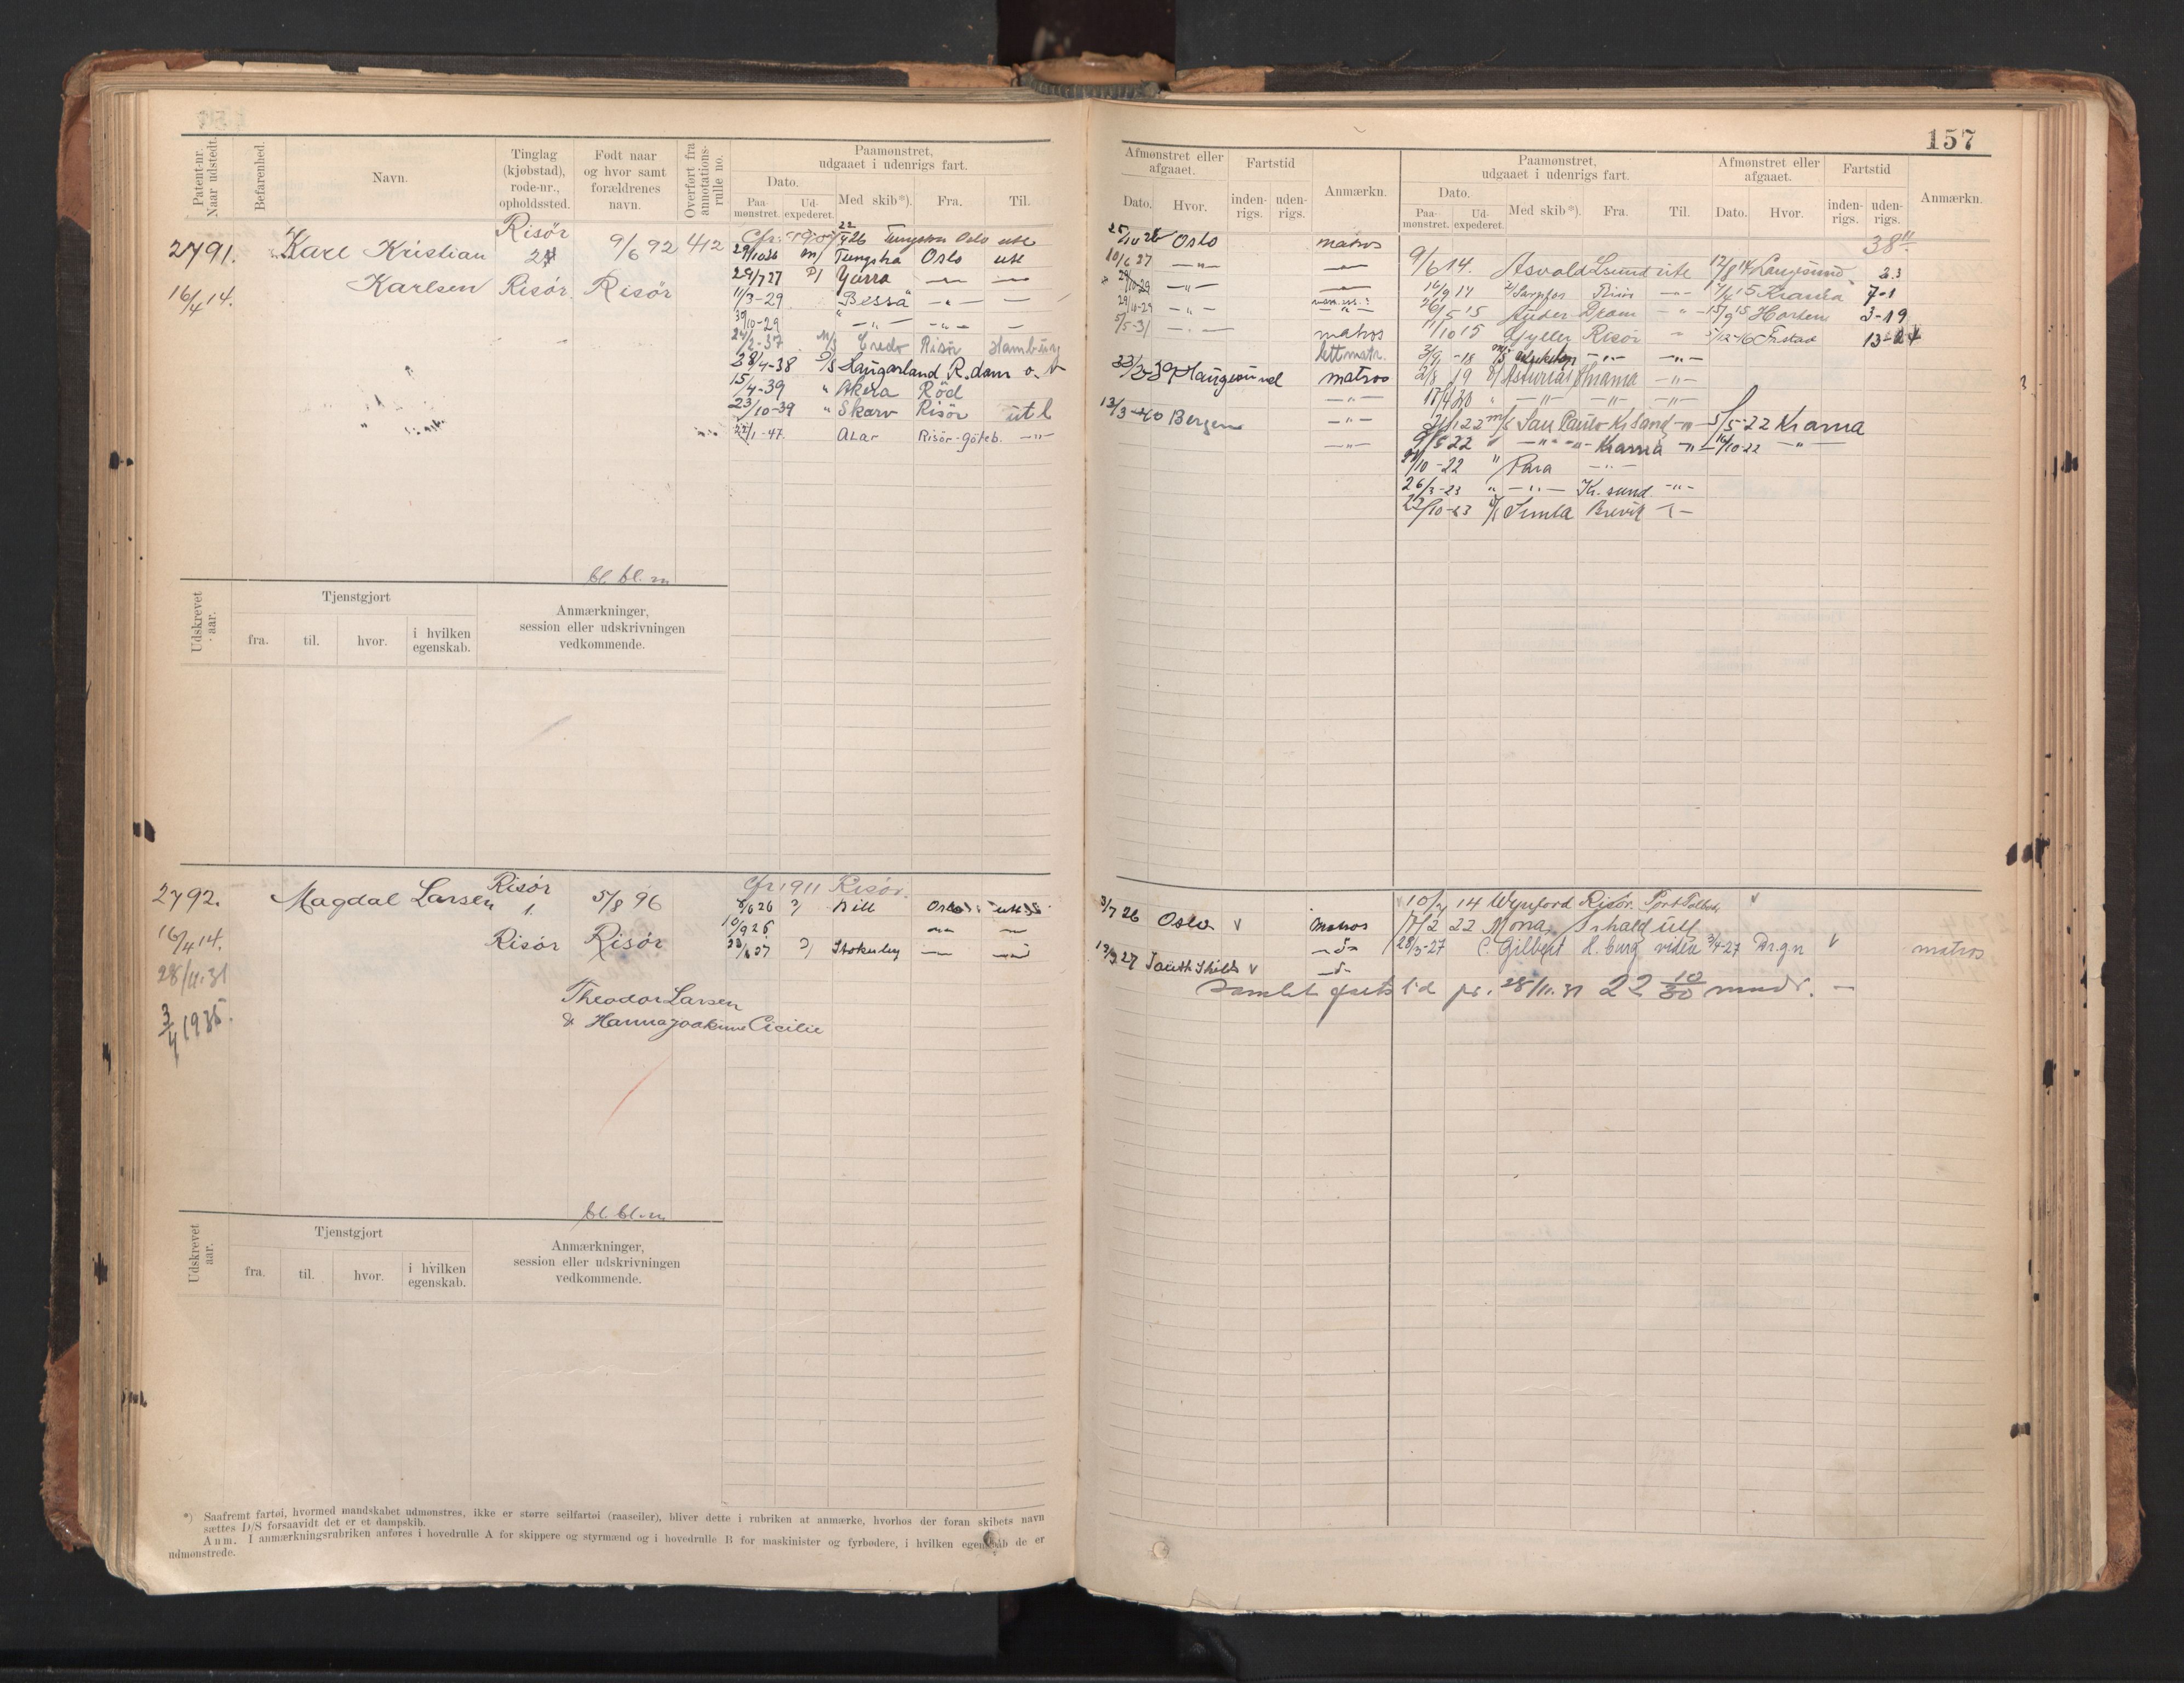 157
Patent-nr. Naar udstedt.
Befarenhed.
Navn.
Tinglag (kjøbstad), rode-nr., opholdssted.
Født naar og hvor samt forældrenes navn.
Overført fra annotations-rulle no.
Paamønstret, udgaaet i udenrigs fart.
Dato.
Paa-mønstret.
Ud-expederet.
Med skib*).
Fra.
Til.
2791.
16/4 14.
Karl Kristian
Karlsen
Risör
Risör
9/6 92
Risör
412
22/4 26 Tungsten Oslo utl
29/10 26 m/ Tungsha Oslo utl
29/7 27 Yarra — —
11/3-29 "Bessa" — —
30/10-29 —"— —"— —
24/2-37 M/S Credo Risör Hamburg
28/4-38 D/S Haugarland R.dam o.v
15/4-39 " Akera Röd
23/10-39 " Skarv Risör utl
22/1-47. Alar Risör-Göteb. —"—
bl. bl. m
Udskrevet aar.
Tjenstgjort
fra.
til.
hvor.
i hvilken egenskab.
Anmærkninger, session eller udskrivningen vedkommende.
2792.
16/4 14.
28/11.31
3/4 1935.
Magdal Larsen
Risör
1.
Risör
5/8 96
Risör
Theodor Larsen
& Hanna Joakime Cicilie
Cfr. 1911 Risör.
8/6 26 Bill Oslo utl
10/9 26 — —
— —
bl. bl. m
Udskrevet aar.
Tjenstgjort
fra.
til.
hvor.
i hvilken egenskab.
Anmærkninger, session eller udskrivningen vedkommende.
*) Saafremt fartøi, hvormed mandskabet udmønstres, ikke er større seilfartøi (raaseiler), bliver dette i rubriken at anmærke, hvorhos der foran skibets navn
sættes D/S forsaavidt det er et dampskib.
Anm. I anmærkningsrubriken anføres i hovedrulle A for skippere og styrmænd og i hovedrulle B for maskinister og fyrbødere, i hvilken egenskab de er
udmønstrede.
Afmønstret eller afgaaet.
Dato.
Hvor.
Fartstid
inden-rigs.
uden-rigs.
Anmærkn.
Paamønstret, udgaaet i udenrigs fart.
Dato.
Paa-mønstret.
Ud-expederet.
Med skib*).
Fra.
Til.
Afmønstret eller afgaaet.
Dato.
Hvor.
Fartstid
inden-rigs.
uden-rigs.
Anmærkn.
25/10 26 Oslo matros
10/6 27 —"— —
29/10-29 —"— —
29/10-29 —"— —"—
5/5-31 —"— matros
lettmatr.
Haugesund matros
—"—
12/3-40 Bergen —"—
—"—
38
9/6 14. Asvald Lsund utl 12/8 14 Langesund 2.3
16/9 14 Sarpfos Risör —"— 7/4 15 Krania 7-1
26/5 15 Auder Dram —"— 15/9 15 Horten 3-19
11/10 15 Gylley Risör " 5/12-16 Frstad
3/9-18 —"— —"—
2/8 19 Asturias Krania —"—
17/4 20 " —"— —"— —"—
31/1 22 m/s Sau Paulo Krsand —"— 5/5-22 Krania
9/5 22 " —"— Krania —"— 16/10-22 —"—
21/10-22 " Para —"—
26/3-23 " —"— Kr.sund —"—
22/10-23 Simla Brevik —"—
3/7 26 Oslo v Matros
19/9 27 South Shilds v —d—
—d—
10/4 14 Wynford Risör. Port Talbot v
17/2 22 Mona Arhald utl
28/3-27 C. Gilbert H.burg videre 3/4-27 Dr.gn v matros
Samlet fartstid pr. 28/11.31 22 10/30 mndr. —